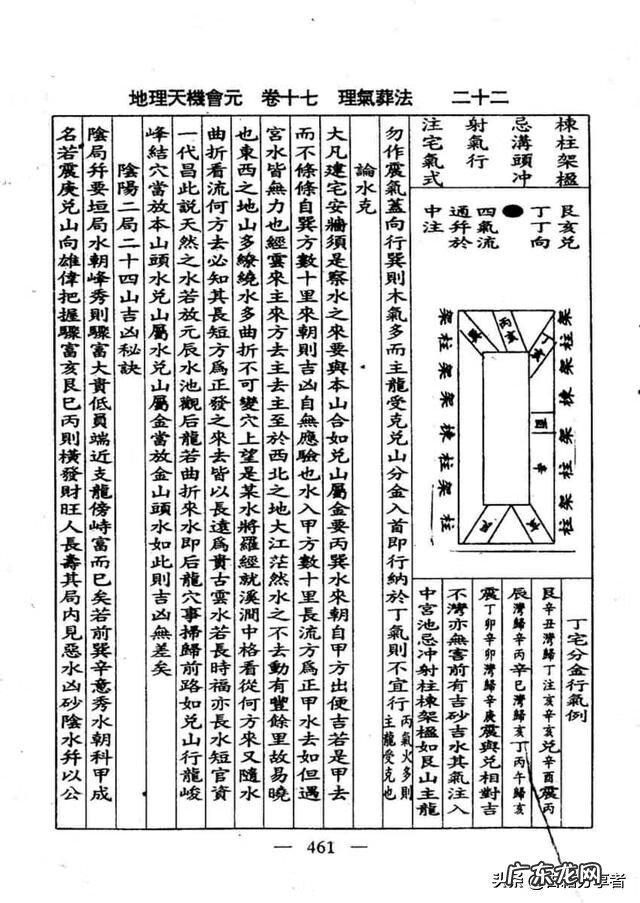 地理天機會元　卷十七　理氣葬法　　二十二
棟柱架楹
忌溝頭冲
射氣行
注宅氣式
艮亥兌
丁丁向
四氣流
通幷於
中注
架柱架棟柱架柱
丙亥
丁
酉
辛
架柱架架棟柱架柱
丁宅分金行氣例
艮辛丑灣歸丁注亥辛亥兌辛酉震丙
辰灣歸辛丙辛巳灣歸亥丁丙午歸亥
震丁卯辛卯灣歸辛庚震與兌相對吉
不灣亦無害前有吉砂吉水其氣注入
中宮池忌冲射柱棟架楹如艮山主龍
勿作震氣蓋向行巽則木氣多而主龍受克兌山分金入首即行納於丁氣則不宜行丙氣火多則主龍受克也
論水克
大凡建宅安墻須是察水之來要與本山合如兌山屬金要丙巽水來朝自甲方出便吉若是甲去
而不條條自巽方數十里來朝則吉凶自無應驗也水入甲方數十里長流方爲正甲水去如但遇
宮水皆無力也經雲來主來方去主去主至於西北之地大江茫然水之不去動有豐餘里故易曉
也東西之地山多繚繞水多曲折不可變穴上望是某水將羅經就溪澗中格看從何方來又隨水
曲折看流何方去必知其長短方爲正發之來去皆以長遠爲貴古雲水若長時福亦長水短官資
一代昌此説天然之水若放元辰水池觀后龍若曲折來水即后龍穴事掃歸前路如兌山行龍峻
峰結穴當放本山頭水兌山屬水兌山屬金當放金山頭水如此則吉凶無差矣
陰陽二局二十四山吉凶秘訣
陰局幷要垣局水朝峰秀則驟富大貴低員端近支龍傍峙富而已矣若前巽辛意秀水朝科甲成
名若震庚兌山向雄偉把握驟富亥艮巳丙則橫發財旺人長壽其局内見惡水凶砂陰水幷以公
— 461 —
头条
分享者
广东龙网